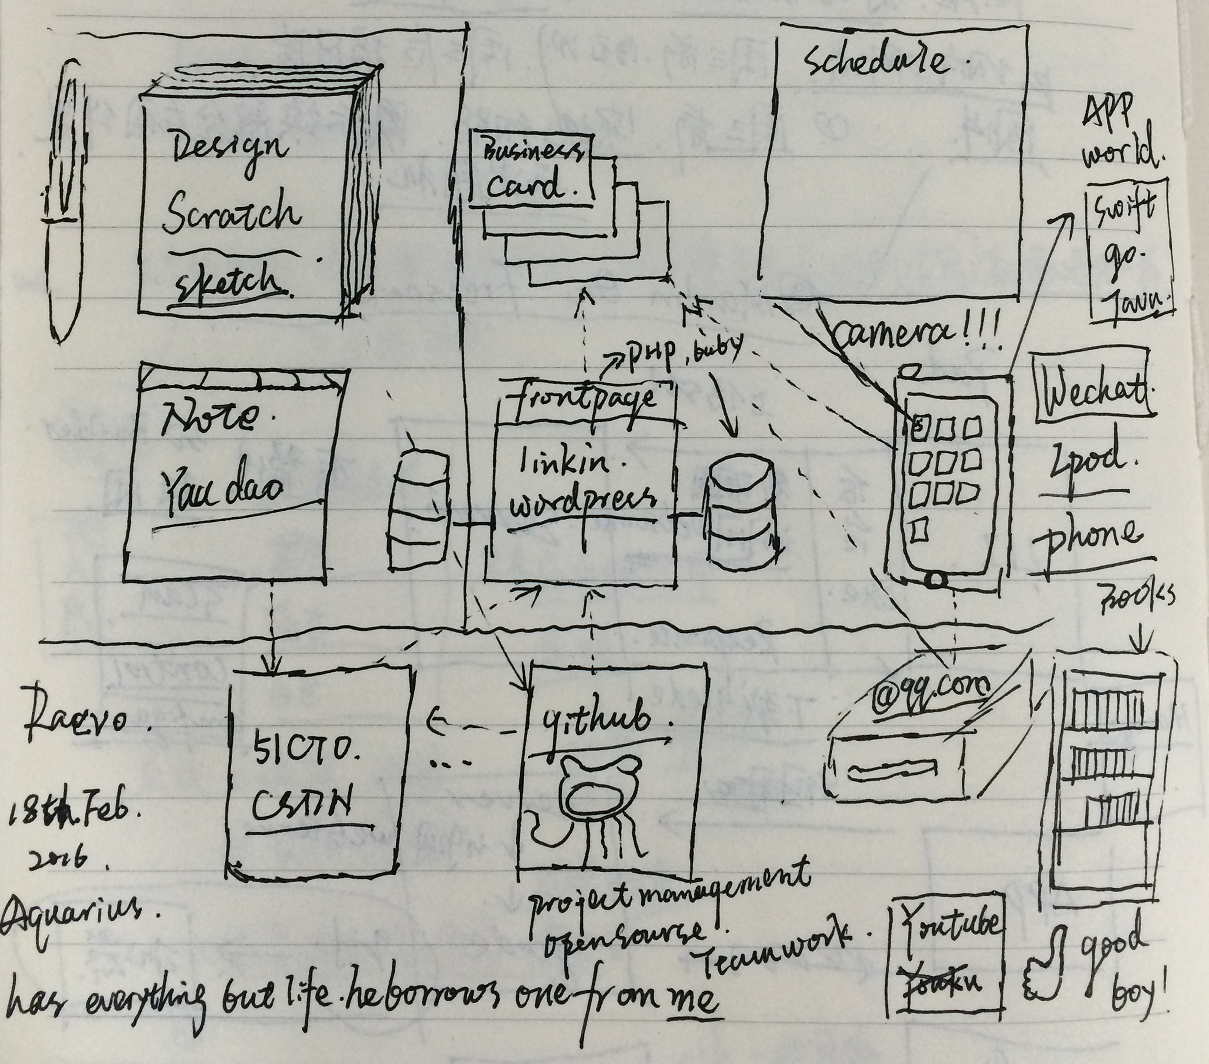 Design
Scratch
sketch.
Business
card.
schedule.
APP
world.
swift
go.
Java.
camera!!!
PHP, buby
frontpage
linkin.
wordpress
Note.
Yau dao
Wechat.
Ipod.
phone
Books
Raevo.
18th Feb.
2016.
Aquarius.
51CTO.
CSDN
github.
@qq.com
project management
opensourse.
Teamwork.
Youtube
Youku
good
boy!
has everything but life. he borrows one from me